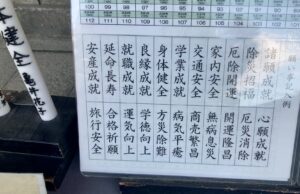 願い事記入例
諸願成就 心願成就
除災招福 厄災消除
厄除開運 開運隆昌
家内安全 無病息災
交通安全 商売繁昌
学業成就 病気平癒
身体健全 方災除難
良縁成就 学徳向上
就職成就 運気向上
延命長寿 合格祈願
安産成就 旅行安全
健全